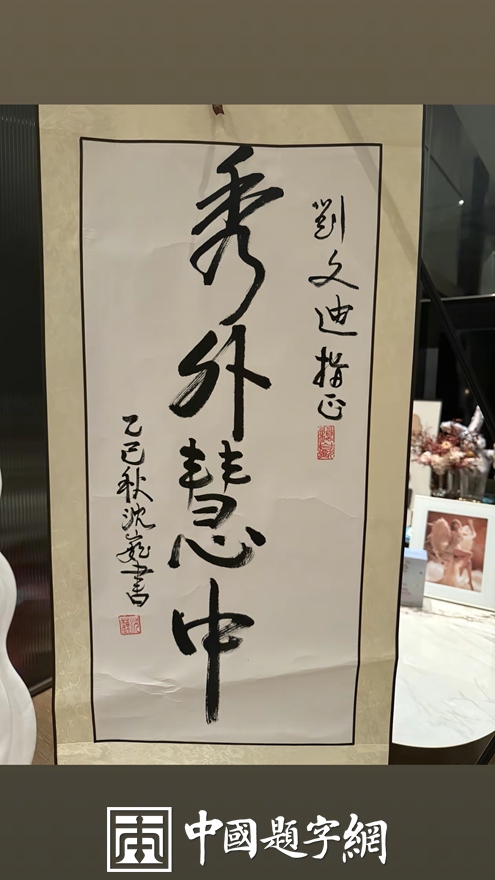 劉文迪指正
秀外慧中
乙巳秋沈巍書
中國題字網